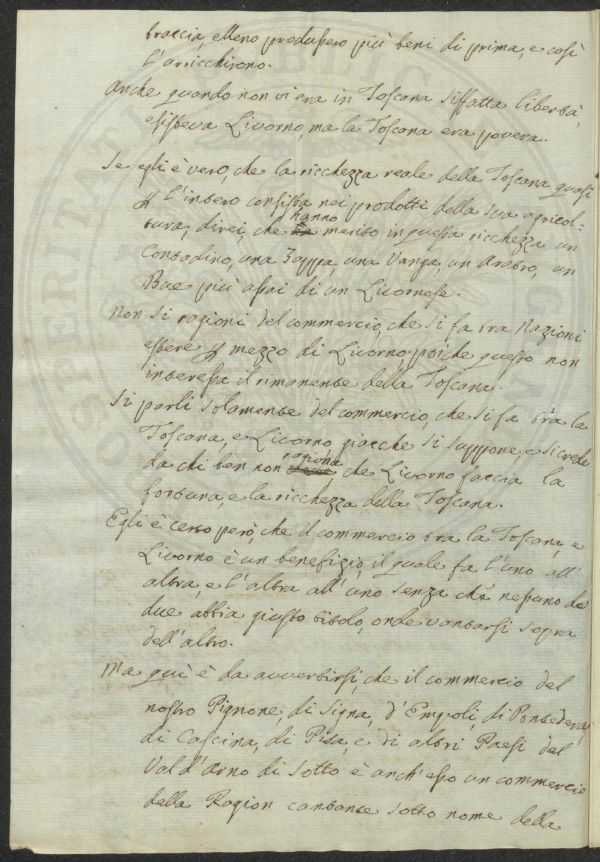 braccia, elleno produssero più beni di prima, e così
l'arricchirono.
Anche quando non vi era in Toscana siffatta libertà,
esisteva Livorno, ma la Toscana era povera.
Se egli è vero, che la ricchezza reale della Toscana quasi
p l'intero consista nei prodotti della sua agricol-
tura, direi, che hanno merito in questa ricchezza un
Contadino, una Zappa, una Vanga, un Aratro, un
Bue più assai di un Livornese.
Non si ragioni del commercio, che si fa tra Nazioni
estere p mezzo di Livorno; poiche questo non
interessa il rimanente della Toscana.
Si parli solamente del commercio, che si fa tra la
Toscana, e Livorno, giacche si suppone, e si crede
da chi ben non ragiona che Livorno faccia la
fortuna, e la ricchezza della Toscana.
Egli è certo però, che il commercio tra la Toscana, e
Livorno è un benefizio, il quale fa l'uno all'
altra, e l'altra all'uno senza che nessuno de'
due abbia giusto titolo, onde vantarsi sopra
dell'altro.
Ma quì è da avvertirsi, che il commercio del
nostro Pignone, di Signa, d'Empoli, di Pontedera,
di Cascina, di Pisa, e di altri Paesi del
Val d'Arno di sotto è anch'esso un commercio
della Ragion cantante sotto nome della